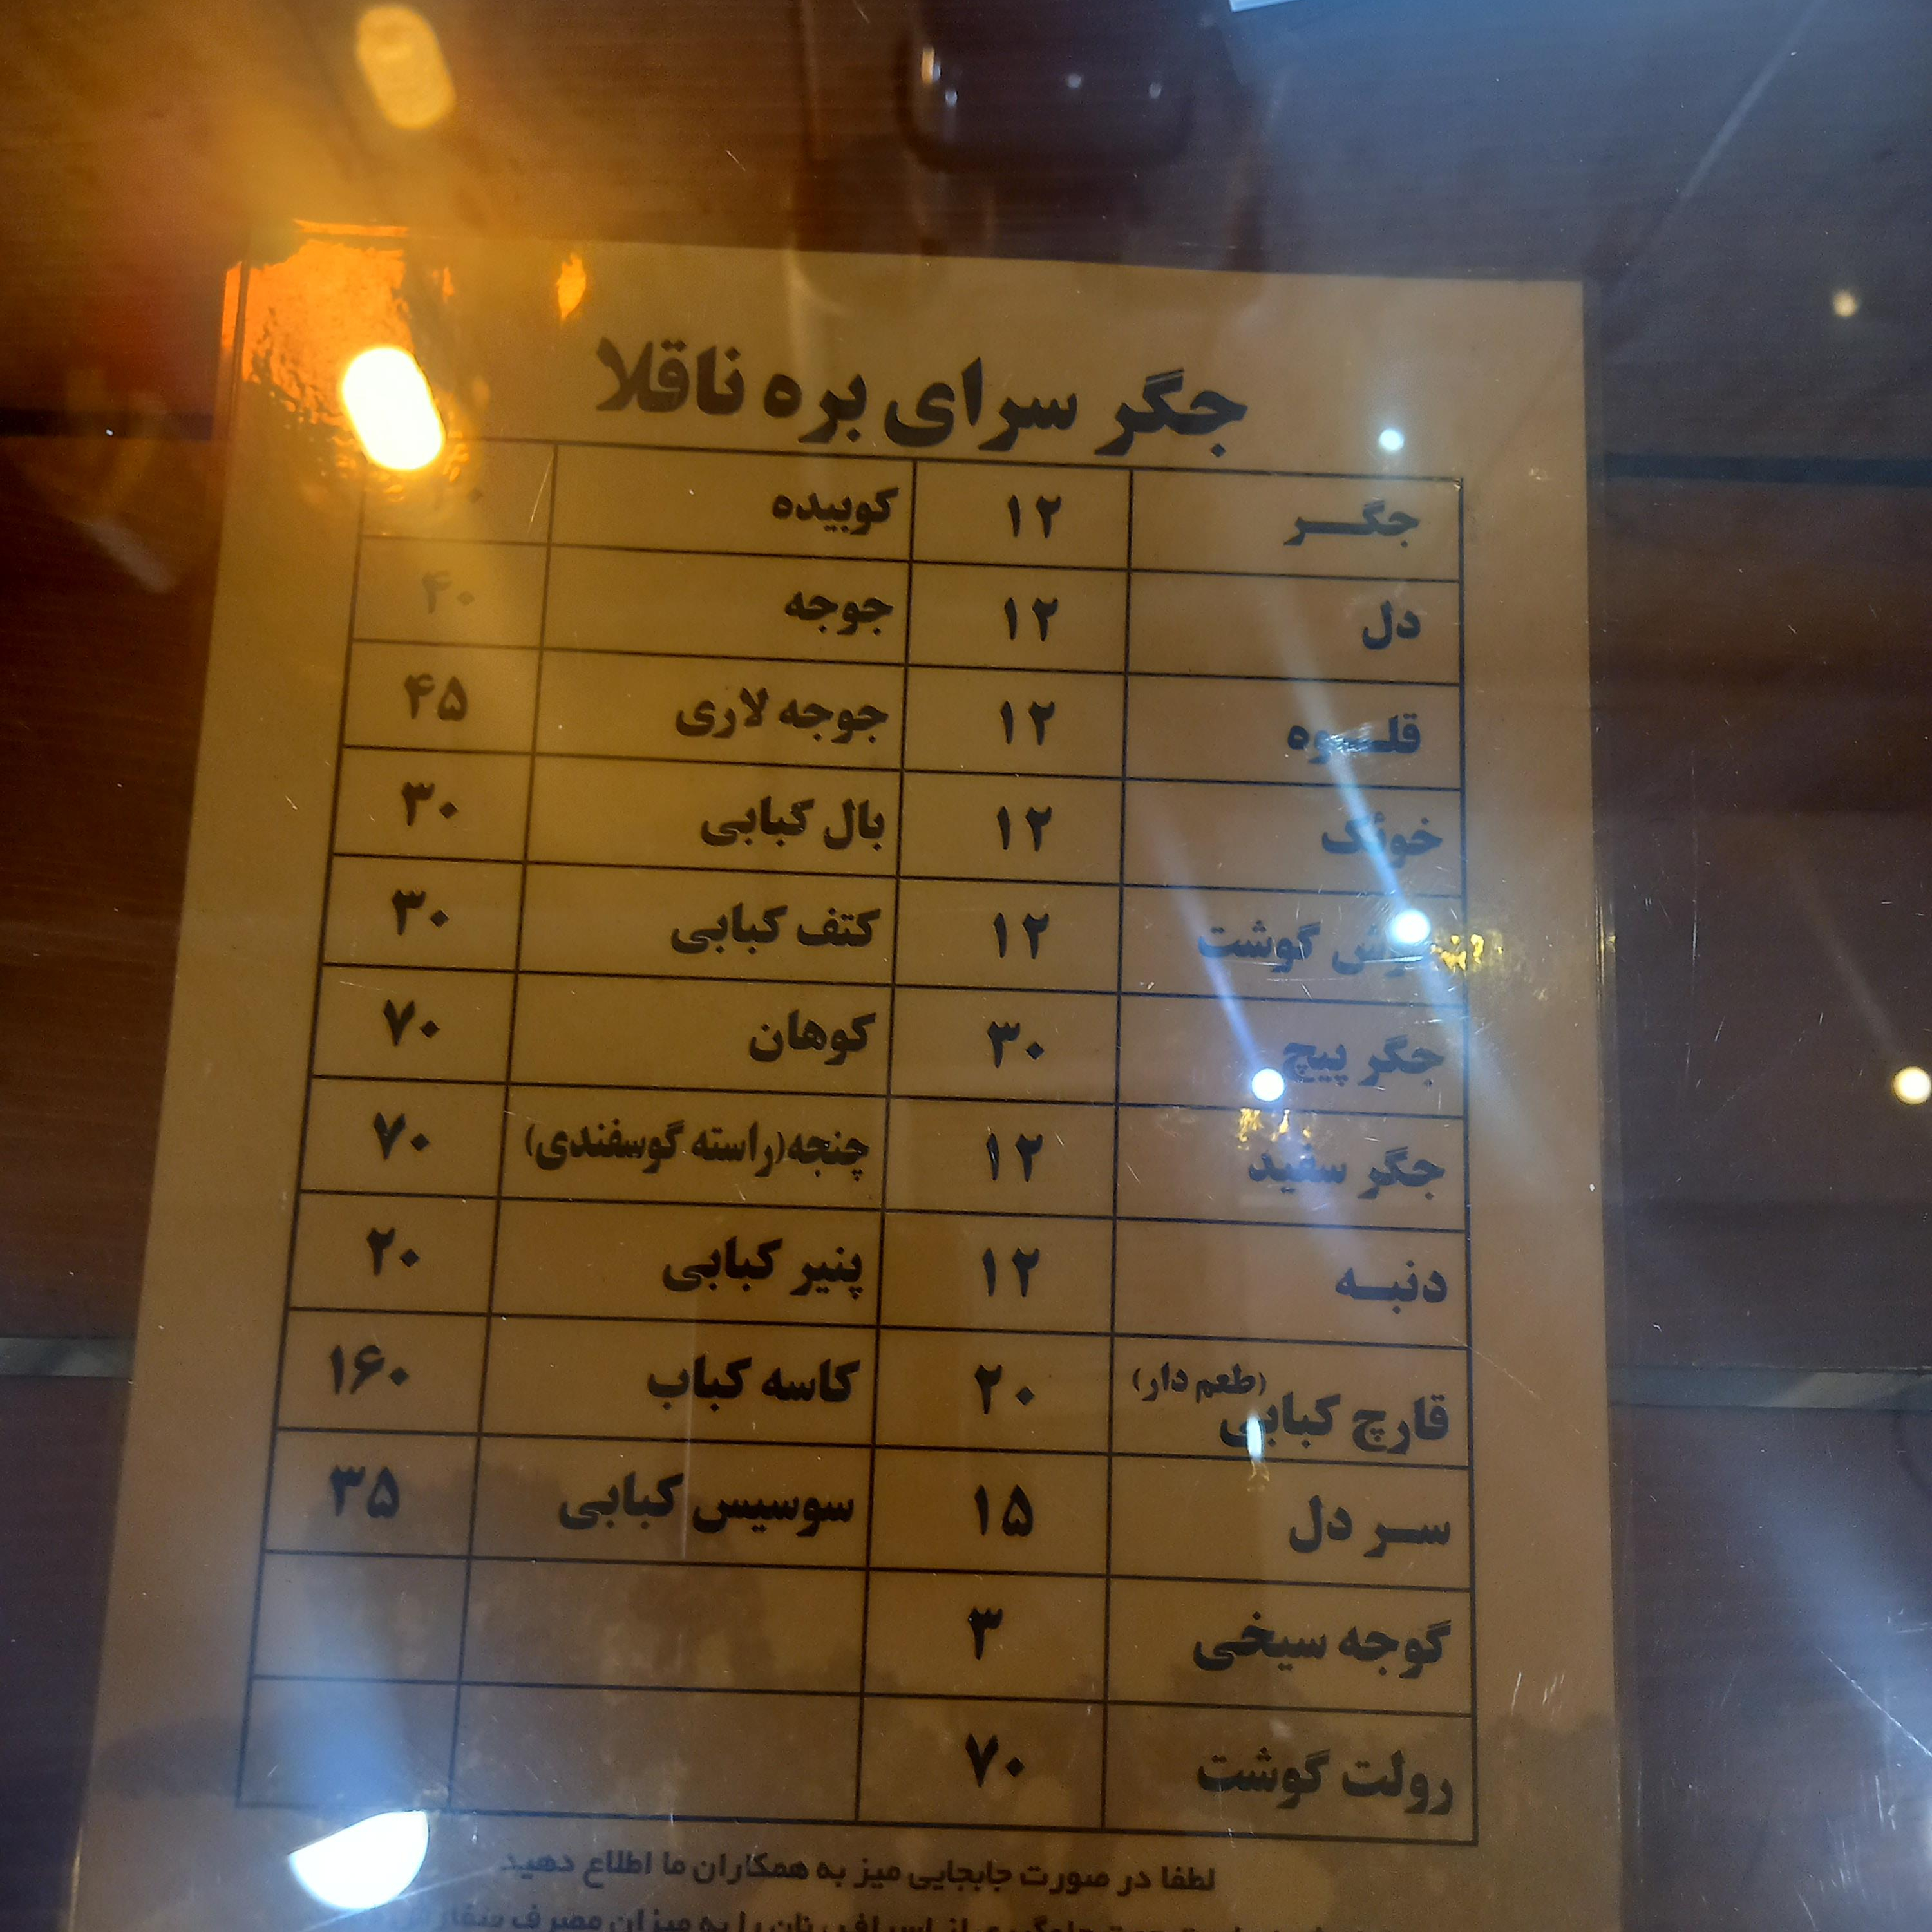 جگر سرای بره ناقلا
جگـــر ۱۲ کوبیده
دل ۱۲ جوجه ۴۰
قلـــوه ۱۲ جوجه لاری ۴۵
خوئک ۱۲ بال کبابی ۳۰
گوشت ۱۲ کتف کبابی ۳۰
جگر پیچ ۳۰ کوهان ۷۰
جگر سفید ۱۲ چنجه(راسته گوسفندی) ۷۰
دنبـــه ۱۲ پنیر کبابی ۲۰
قارچ کبابی (طعم دار) ۲۰ کاسه کباب ۱۶۰
ســـر دل ۱۵ سوسیس کبابی ۳۵
گوجه سیخی ۳
رولت گوشت ۷۰
لطفا در صورت جابجایی میز به همکاران ما اطلاع دهید
از اسراف نان را به میزان مصرف